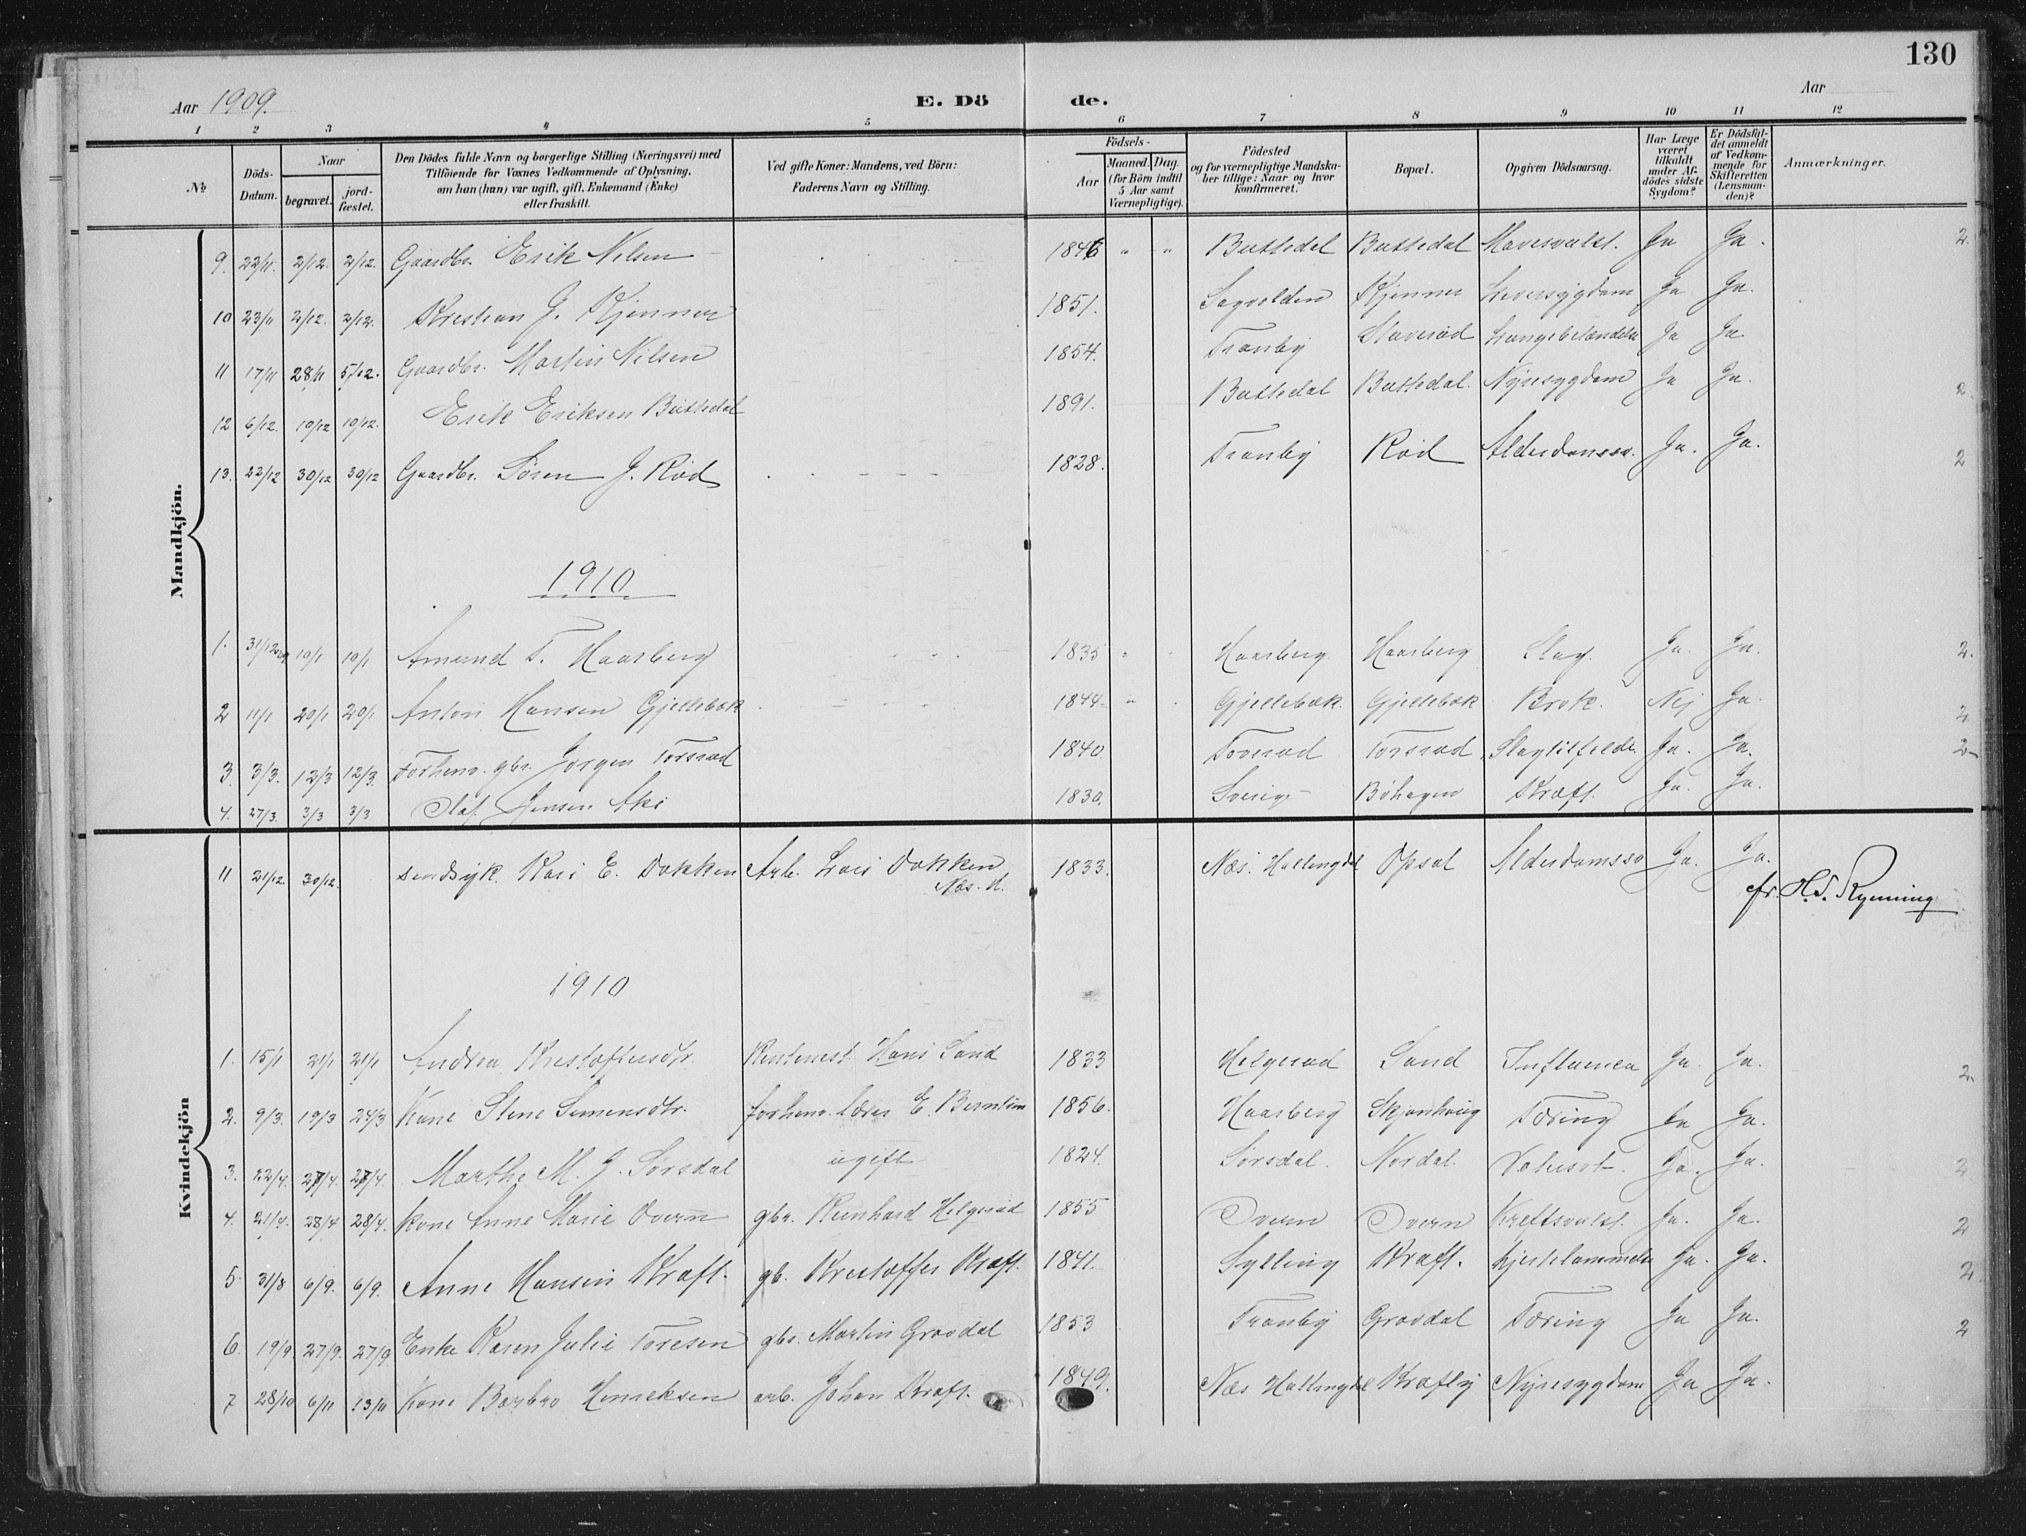 130
Aar 1909. E. Dö de. Aar
1 2 3 4 5 6 7 8 9 10 11 12
№ Döds-Datum. Naar begravet. jord-fæstet. Den Dödes fulde Navn og borgerlige Stilling (Næringsvei) med Tilföiende for Voxnes Vedkommende af Oplysning, om han (hun) var ugift, gift, Enkemand (Enke) eller fraskilt. Ved gifte Koner: Mandens, ved Börn: Faderens Navn og Stilling. Födsels- Aar Maaned. Dag. (for Börn indtil 5 Aar samt Værnepligtige). Födested og for værnepligtige Mandska-ber tillige: Naar og hvor konfirmeret. Bopæl. Opgiven Dödsaarsag. Har Læge været tilkaldt under Af-dödes sidste Sygdom? Er Dödsfal-det anmeldt af Vedkom-mende for Skifteretten (Lensman-den)? Anmærkninger.
Mandkjön.
9. 22/11. 2/12. 2/12. Gaardbr. Erik Nilsen 1846 " " Buttedal Buttedal Mavesvulst. Ja Ja. 2.
10 23/11 2/12. 2/12. Kristian J. Kjenner 1851. Sagvolden Kjenner Leversygdom Ja Ja.
11 17/11 28/11 5/12. Gaardbr. Martin Nilsen 1854. Tranby Staverød Lungebetændelse Ja Ja
12 6/12. 19/12 19/12. Erik Eriksen Buttedal 1891. Buttedal Buttedal. Nyresygdom Ja Ja. 2.
13. 22/12 30/12 30/12 Gaardbr. Søren J. Rød 1828. Tranby Rød Alderdomssv. Ja. Ja. 2
1910
1. 31/12 10/1 10/1 Amund T. Haarberg 1835 " Haarberg Haarberg Slag. Ja. Ja. 2.
2 11/1 20/1 20/1 Anton Hansen Gjellebæk 1844 " Gjellebæk. Gjellebæk Brok. Nej Ja. 2.
3. 3/3. 12/3 12/3. Forhenv. gbr. Jørgen Torsrud 1840 Toverud Torsrud Slagtilfælde. Ja. Ja. 2
4. 27/3. 3/3 3/3 Olaf Jensen 1830. Bøhagen Kræft. Ja. Ja.
Kvindekjön
11 21/12. 30/12. Kari E. Dokken Arb. Lars Dokken Næs. H. 1833. Næs. Hallingdal Opsal Alderdomssv Ja. Ja. fr. H. S. Rynning
1910
1. 15/1 21/1 21/1 Andrea Kristoffersdtr. Hans Sand 1833 Helgerud Sand Influenca Ja. Ja. 2
2. 9/3. 19/3 24/3 Kone Stene Simensdtr. forhenv. Lærer E. Berntsen 1856. Haarberg Skjønhaug Tæring Ja Ja.
3. 22/4. 27/4. 27/4. Marthe M. J. Sørsdal ugift 1824. Sørsdal. Nordal. Vatusot. Ja. Ja. 2
4. 21/4. 28/4 28/4. Kone Anne Marie Overn gbr. Reinhard Helgerud 1855 Overn Overn Kræftsvulst. Ja. Ja. 2
5. 31/8 6/9. 6/9. Anne Hansen Kræft. gb. Kristoffer Kræft. 1841. Sylling Kræft. Hjertelammelse Ja. Ja. 2.
6. 19/9 27/9. 27/9 Enke Karen Julie Toresen gbr. Martin Gravdal 1853 Tranby Gravdal Tæring Ja Ja. 2
7 28/10 6/11 13/11 Kone Barbro Henriksen arb. Johan Kræft. 1849. Næs Hallingdal Nyresygdom Ja Ja.